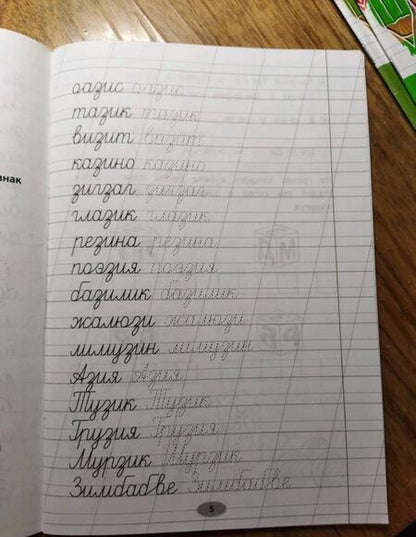 знак
оазис оазис
тазик тазик
визит визит
казино казино
зигзаг зигзаг
глазик глазик
резина резина
поэзия поэзия
базилик базилик
жалюзи жалюзи
лимузин лимузин
Азия Азия
Тузик Тузик
Грузия Грузия
Мурзик Мурзик
Зимбабве Зимбабве
5